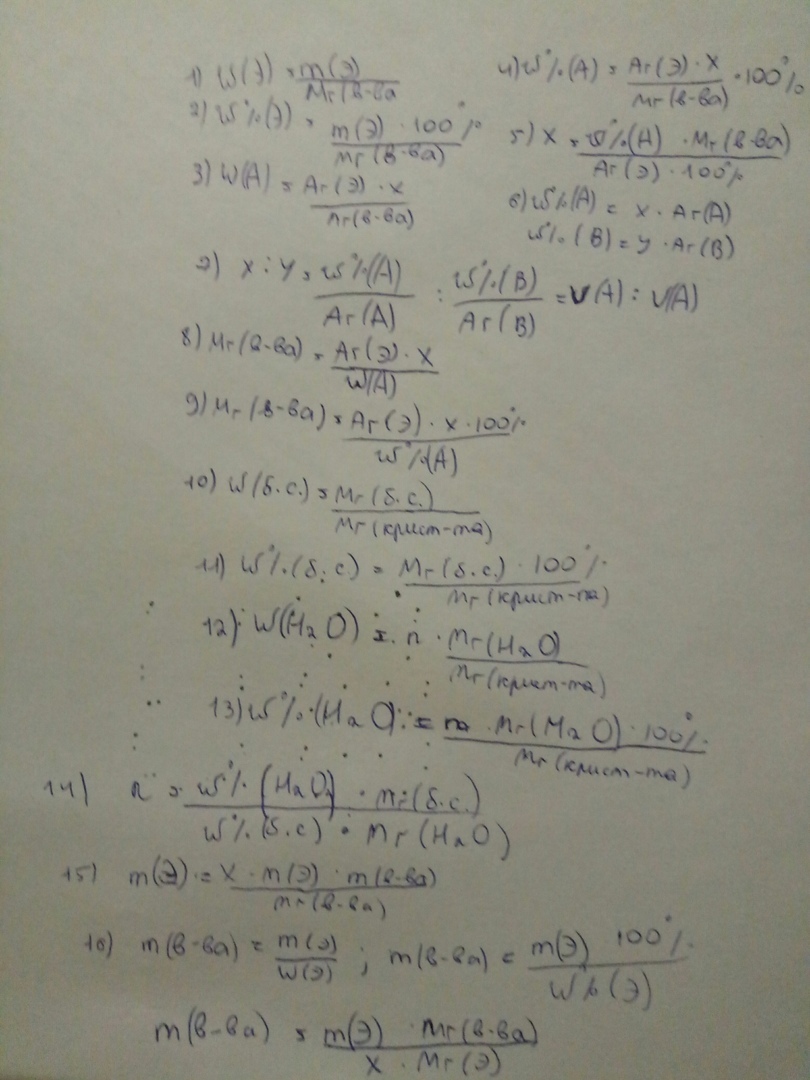 1) W(Э) = m(Э) / Mr(в-ва
2) W%(Э) = m(Э) · 100% / Mr(в-ва)
3) W(A) = Ar(Э) · x / Ar(в-ва)
4) W%(A) = Ar(Э) · x / Mr(в-ва) · 100%
5) x = W%(A) · Mr(в-ва) / Ar(Э) · 100%
6) W%(A) = x · Ar(A)
W%(B) = y · Ar(B)
7) x : y = W%(A) / Ar(A) : W%(B) / Ar(B) = ν(A) : ν(A)
8) Mr(в-ва) = Ar(Э) · x / W(A)
9) Mr(в-ва) = Ar(Э) · x · 100% / W%(A)
10) W(б.с.) = Mr(б.с.) / Mr(крист-та)
11) W%(б.с) = Mr(б.с.) · 100% / Mr(крист-та)
12) W(H2O) = n · Mr(H2O) / Mr(крист-та)
13) W%(H2O) = n · Mr(H2O) · 100% / Mr(крист-та)
14) n = W%(H2O) · Mr(б.с.) / W%(б.с) · Mr(H2O)
15) m(Э) = x · m(Э) · m(в-ва) / Mr(в-ва)
16) m(в-ва) = m(Э) / W(Э) ; m(в-ва) = m(Э) 100% / W%(Э)
m(в-ва) = m(Э) · Mr(в-ва) / x · Mr(Э)